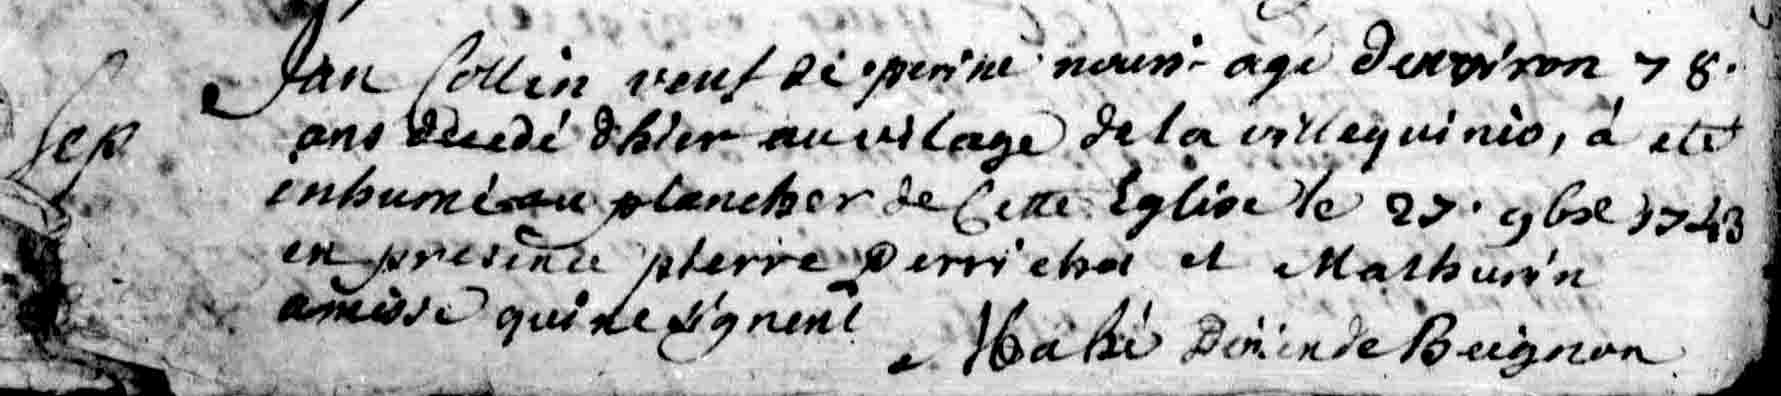 Jan Collin veuf de perine nourri agé denviron 78.
Sep
ans decedé dhier au vilage de la villequinio, á eté
inhumé au plancher de Cette Eglise le 27. 9bre 1743
en presence pierre Perrichot et Mathurin
amisse qui ne signent
Mahé Doïen de Beignon